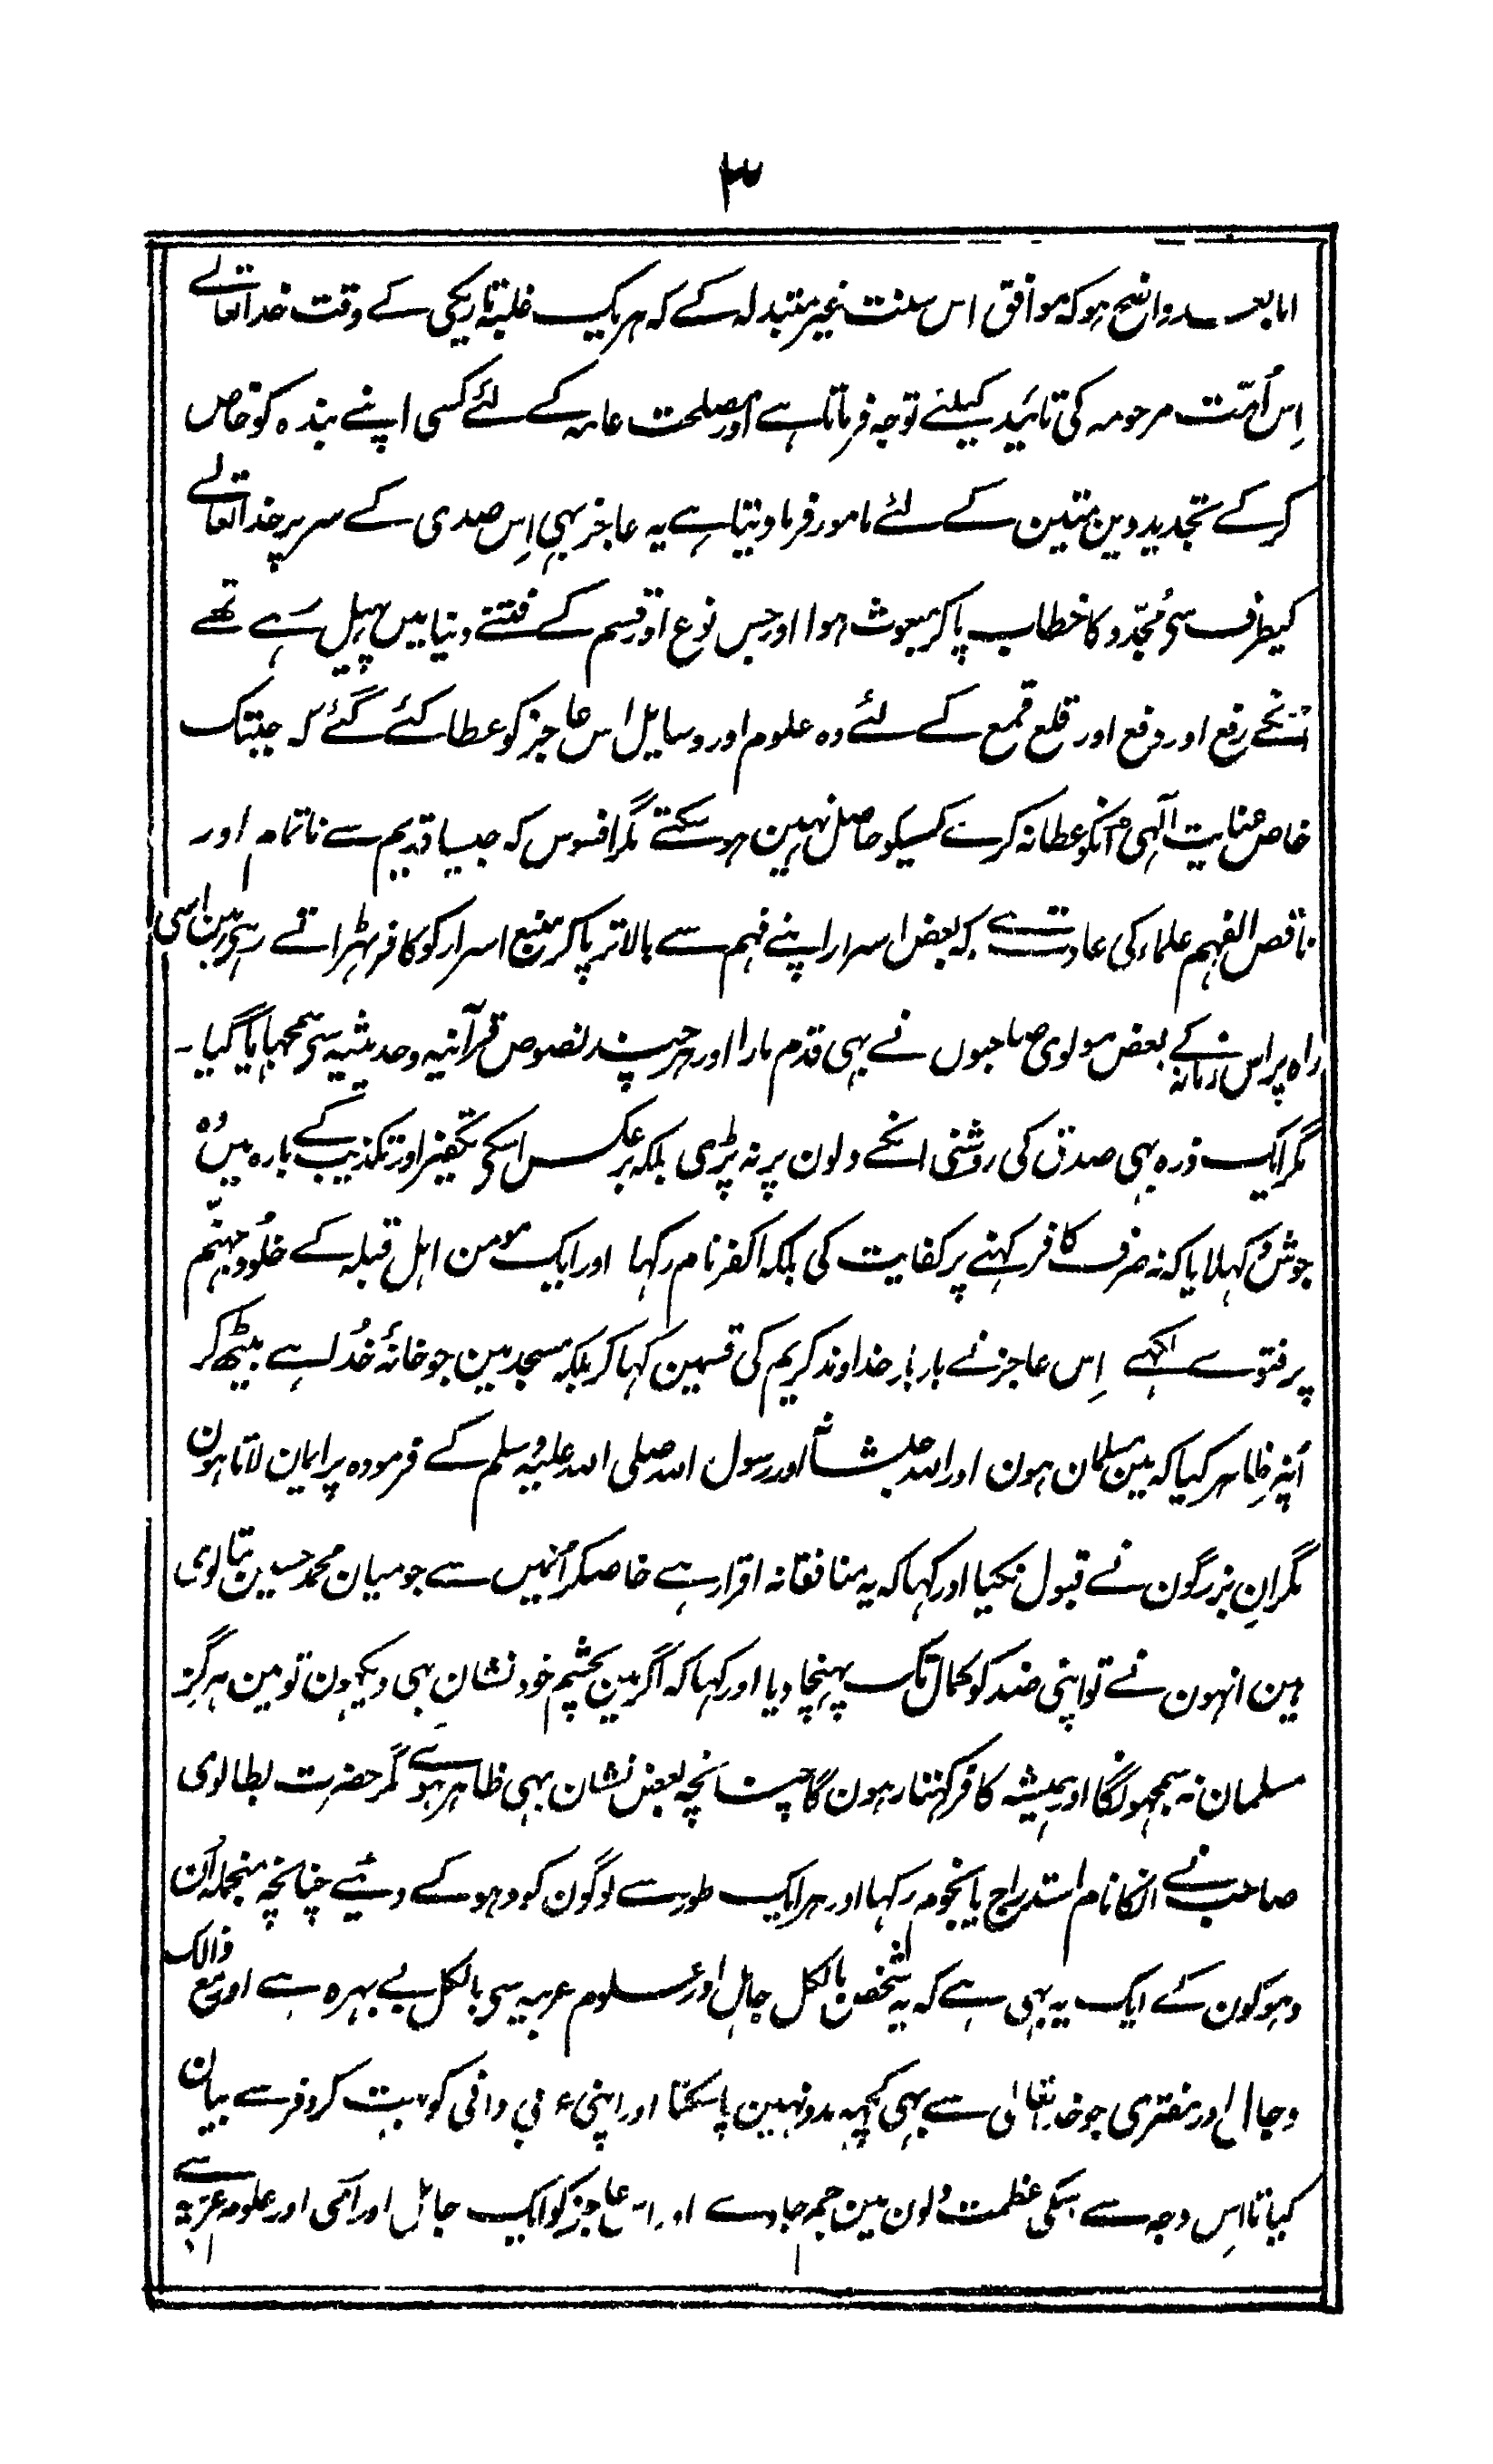 ۳
امابعد واضح ہو کہ موافق اس سنت غیر متبدلہ کے کہ ہریک غلبہ تاریکی کے وقت خدا تعالےٰ
اِس اُمّت مرحومہ کی تائید کیلئے توجہ فرماتا ہے اور مصلحت عامہ کے لئے کسی اپنے بندہ کو خاص
کر کے تجدید دین متین کے لئے مامور فرما دیتا ہے یہ عاجز بہی اِس صدی کے سر پر خدا تعالےٰ
کیطرف سی مُجدّد کا خطاب پا کر مبعوث ہوا اور جس نوع اور قسم کے فتنے دنیا میں پہیل رہے تھے
انکے رفع اور دفع اور قلع قمع کے لئے وہ علوم اور وسایل اس عاجز کو عطا کئے گئے کہ جبتک
خاص عنایت الٓہی انکو عطا نہ کرے کسیکو حاصل نہین ہو سکتے مگر افسوس کہ جیسا قدیم سے ناتمام اور
ناقص الفہم علماء کی عادت ہے کہ بعض اسرار اپنے فہم سے بالاتر پا کر منبع اسرار کو کافر ٹہراتے رہے ہین اسی
راہ پر اس زمانہ کے بعض مولوی صاحبوں نے بہی قدم مارا اور ہر چند نصوص قرآنیہ و حدیثیہ سی سمجہایا گیا۔
مگر ایک ذرہ بہی صدق کی روشنی انکے دلون پر نہ پڑی بلکہ برعکس اسکے تکفیر اور تکذیب کے بارہ میں وُہ
جوش دکہلایا کہ نہ صرف کافر کہنے پر کفایت کی بلکہ اکفر نام رکہا اور ایک مومن اہل قبلہ کے خلُود جہنّم
پر فتوے لکہے اِس عاجز نے بار بار خداوند کریم کی قسمین کہا کر بلکہ مسجد مین جو خانۂ خُدا ہے بیٹھ کر
اُنپر ظاہر کیا کہ مین مسلمان ہون اور اللہ جلشانہٗ اور رسول اللہ صلی اللہ علیہ وسلم کے فرمودہ پر ایمان لاتا ہون
مگر اِن بزرگون نے قبول نکیا اور کہا کہ یہ منافقانہ اقرار ہے خاصکر اُنمیں سے جو میان محمد حسین بتالوی
ہین انہون نے تو اپنی ضد کو کمال تک پہنچا دیا اور کہا کہ اگر مین بچشم خود نشان بہی دیکہون تو مین ہرگز
مسلمان نہ سمجہونگا اور ہمیشہ کافر کہتا رہون گا چنانچہ بعض نشان بہی ظاہر ہوئے مگر حضرت بطالوی
صاحب نے انکا نام استدراج یا نجوم رکہا اور ہر ایک طور سے لوگون کو دہوکے دئیے چنانچہ منجملہ اُن
دہوکون کے ایک یہ بہی ہے کہ یہ شخص بالکل جاہل اور علوم عربیہ سی بالکل بے بہرہ ہے اور مع ذالک
دجال اور مفتری جو خدا تعالیٰ سے بہی کچہہ مدد نہین پا سکتا اور اپنی عربی دانی کو بہت کر و فر سے بیان
کیا تا اس وجہ سے اسکی عظمت دلون مین جم جاوے اور اس عاجز کو ایک جاہل اور اُمی اور علوم عربیہ سے